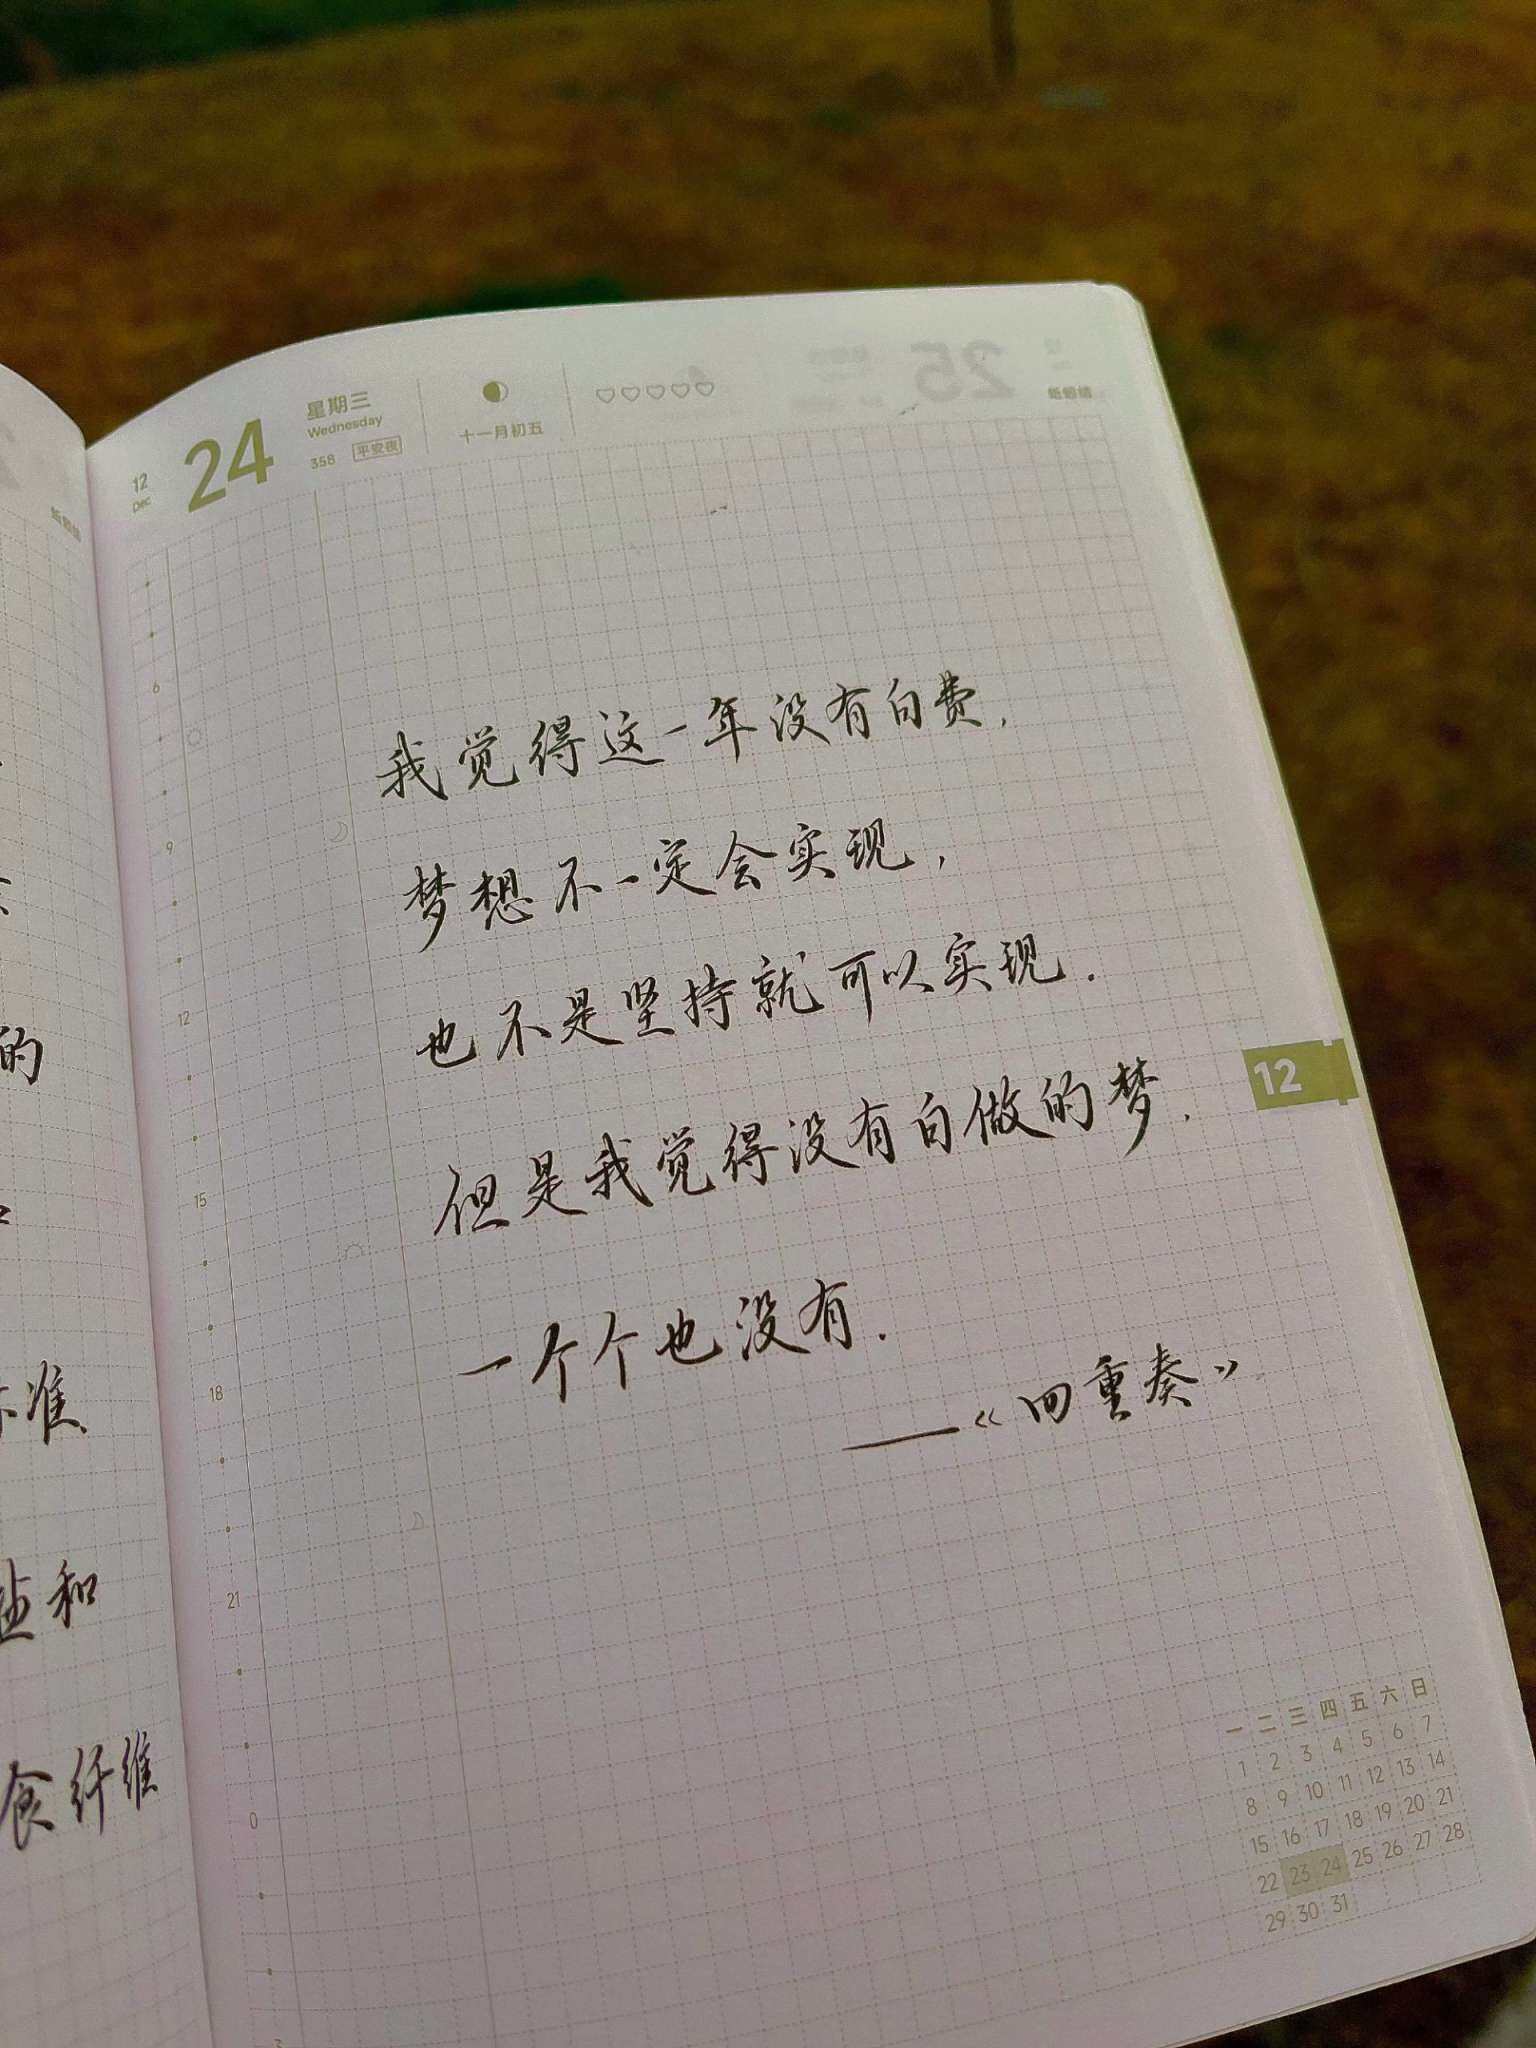 12
Dec
24
星期三
Wednesday
358 平安夜
十一月初五
我觉得这一年没有白费,
梦想不一定会实现,
也不是坚持就可以实现.
但是我觉得没有白做的梦.
一个个也没有.
——《四重奏》
的
准
盐和
食纤维
6
9
12
15
18
21
0
3
12
一 二 三 四 五 六 日
1 2 3 4 5 6 7
8 9 10 11 12 13 14
15 16 17 18 19 20 21
22 23 24 25 26 27 28
29 30 31